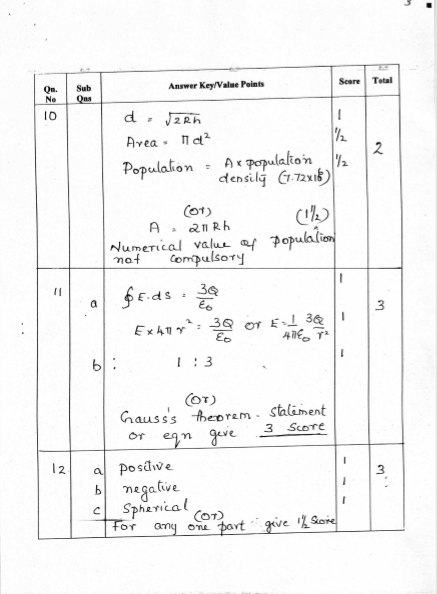 3
Qn. No Sub Qns Answer Key/Value Points Score Total
10 d = √2Rh 1
Area = πd² ½
Population = A × population density (7.72×10⁶) ½ 2
(or)
A = 2πRh (1½)
Numerical value of population
not compulsory
11 a ∮E.ds = 3Q/ε₀ 1 3
E×4πr² = 3Q/ε₀ or E = 1/4πε₀ 3Q/r² 1
b : 1 : 3 1
(or)
Gauss's theorem - statement
or eqn give 3 Score
12 a positive 1 3
b negative 1
c Spherical 1
(or)
For any one part give 1½ Score